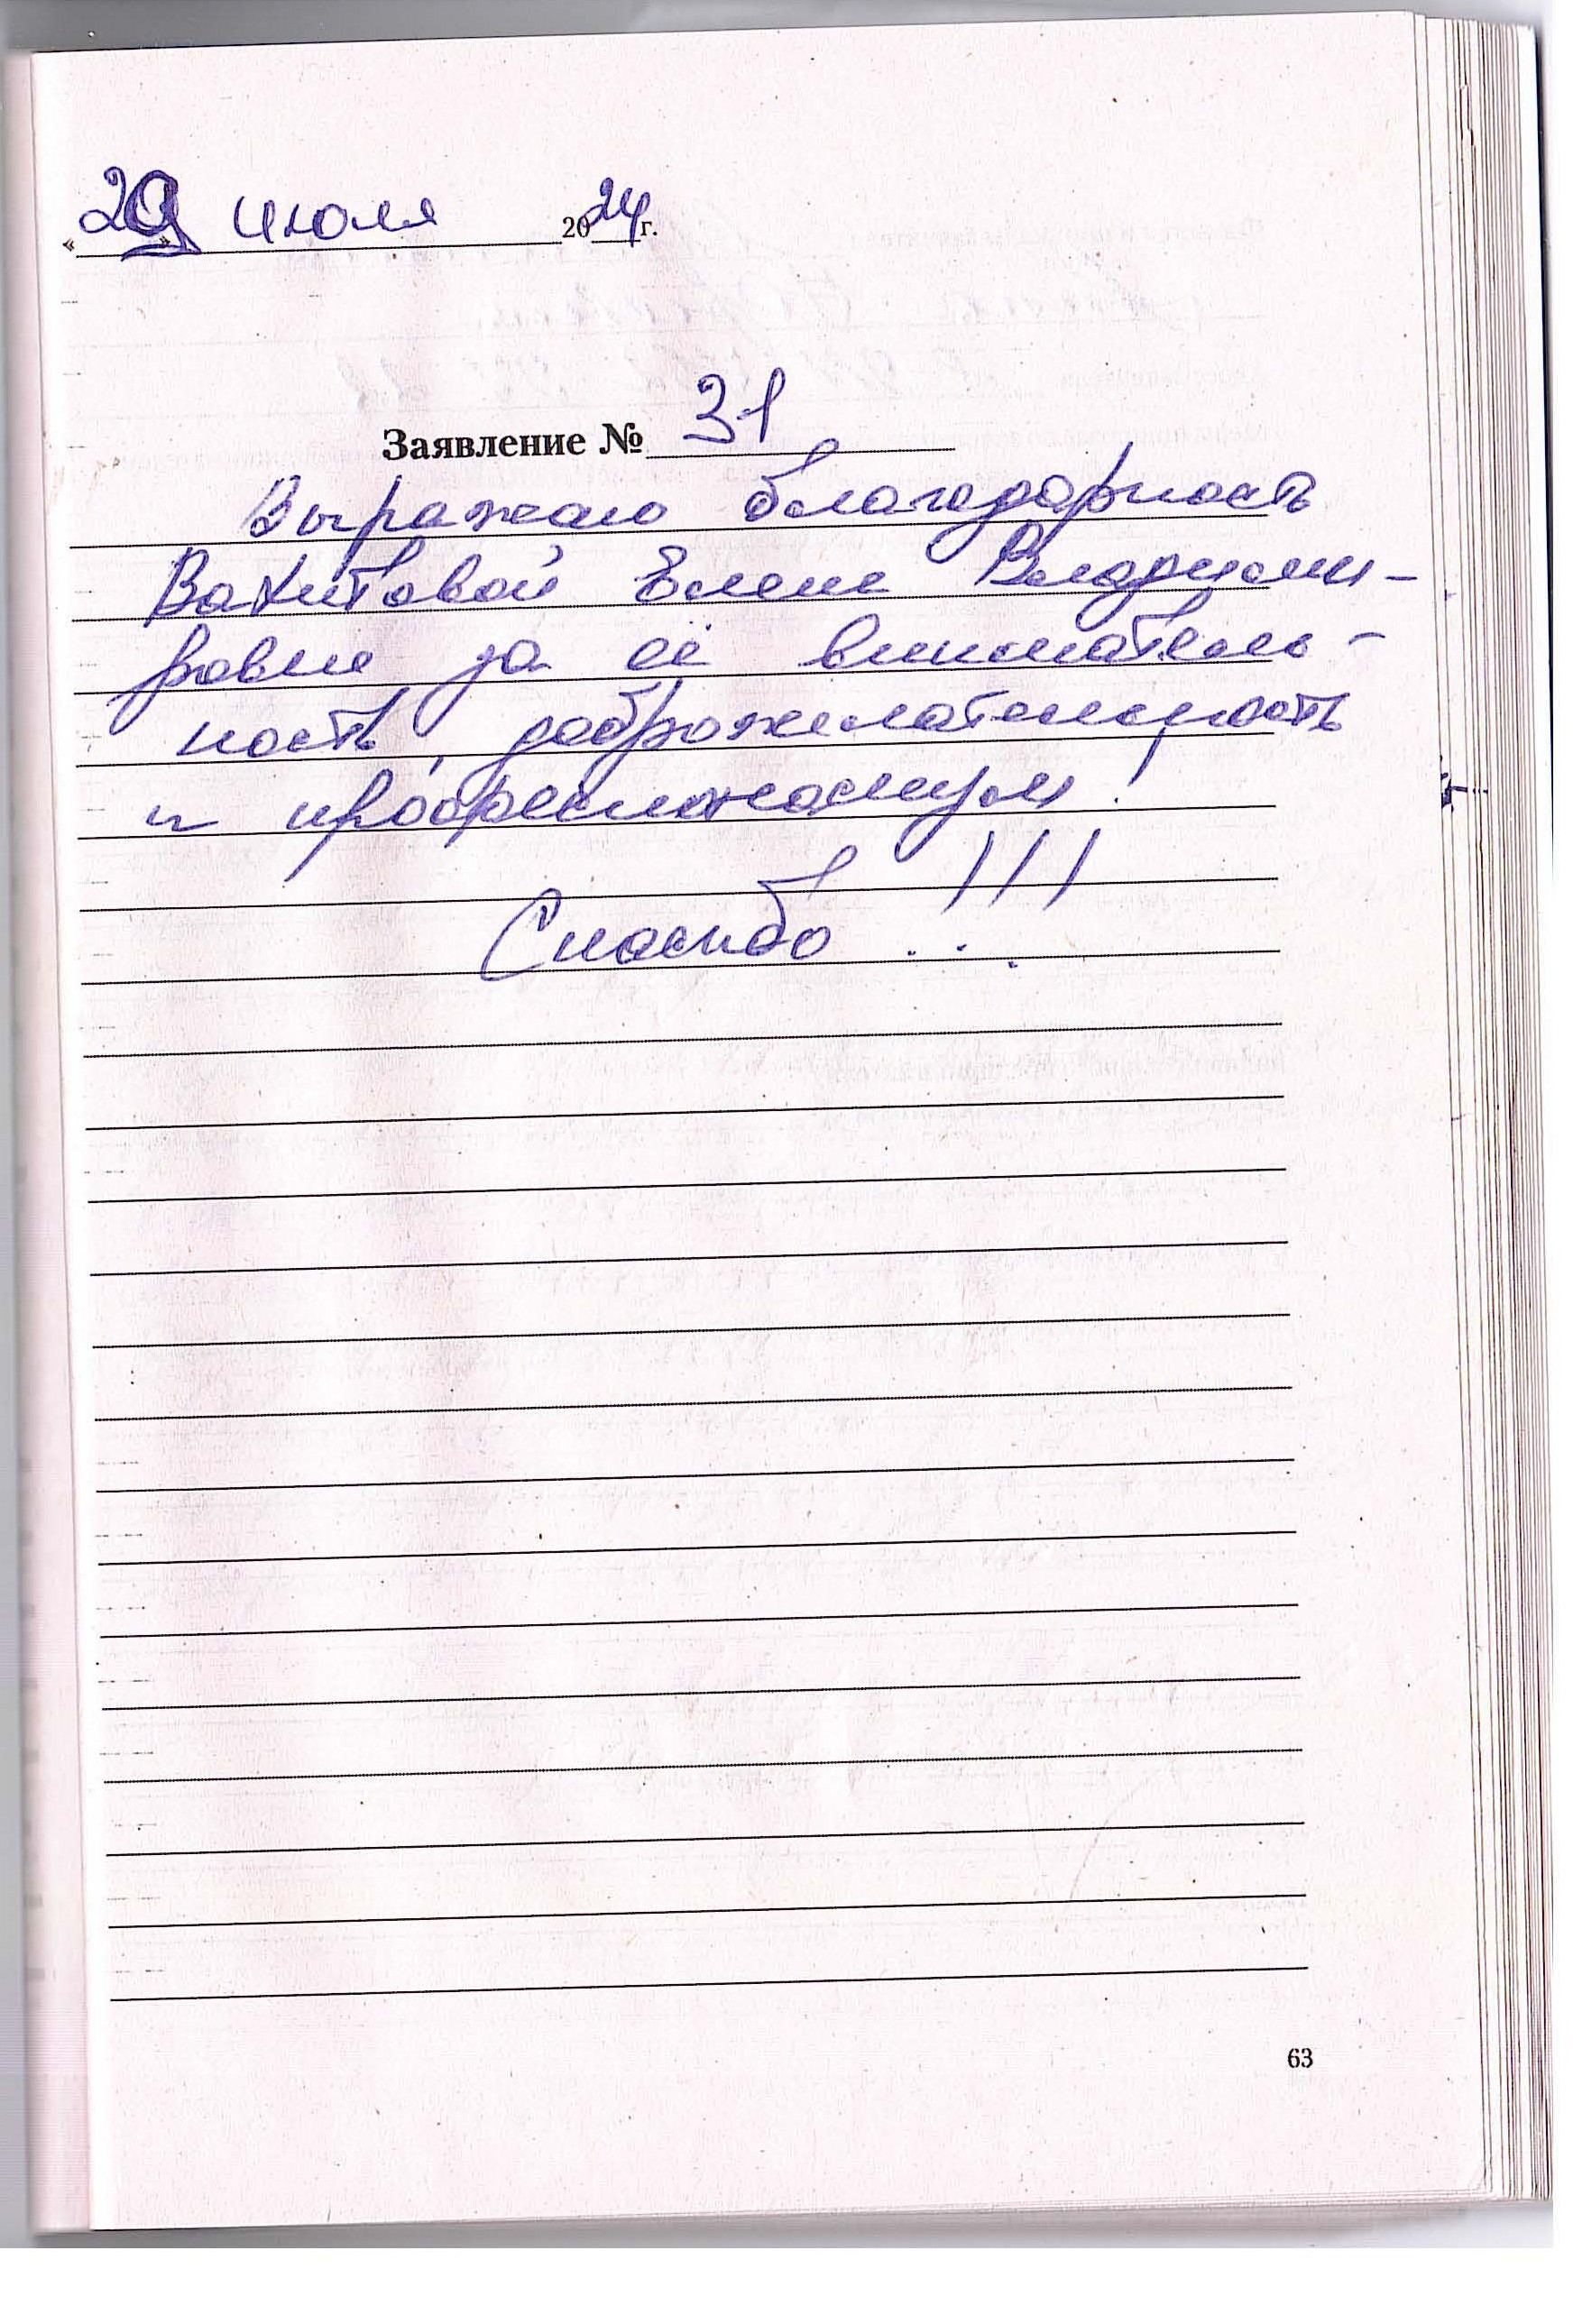 «29» июля 2024г.
Заявление № 31
Выражаю благодарность
Вахитовой Елене Владими-
ровне за её вниматель-
ность, доброжелательность
и профессионализм!
Спасибо!!!
63